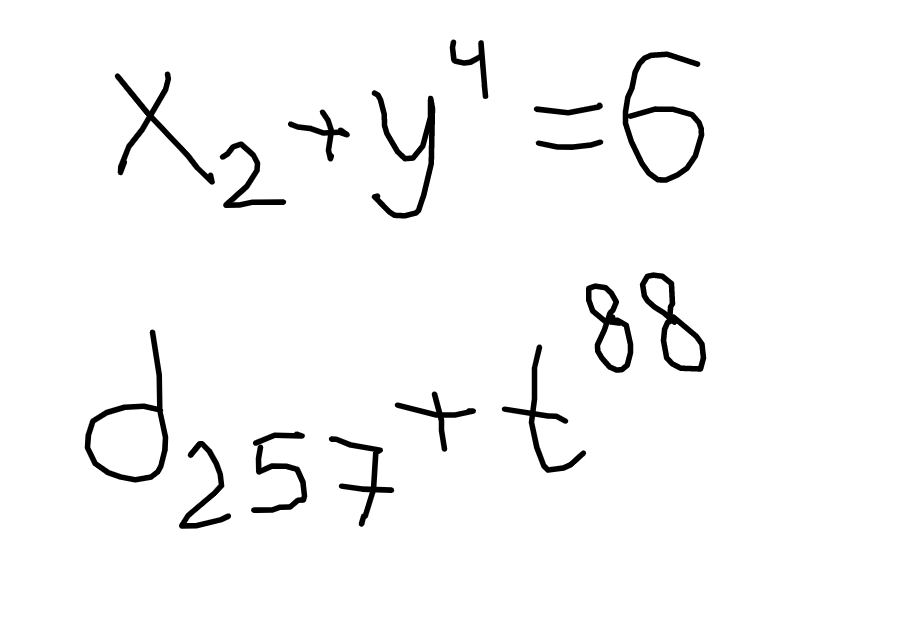 x₂ + y⁴ = 6
d₂₅₇ + t⁸⁸